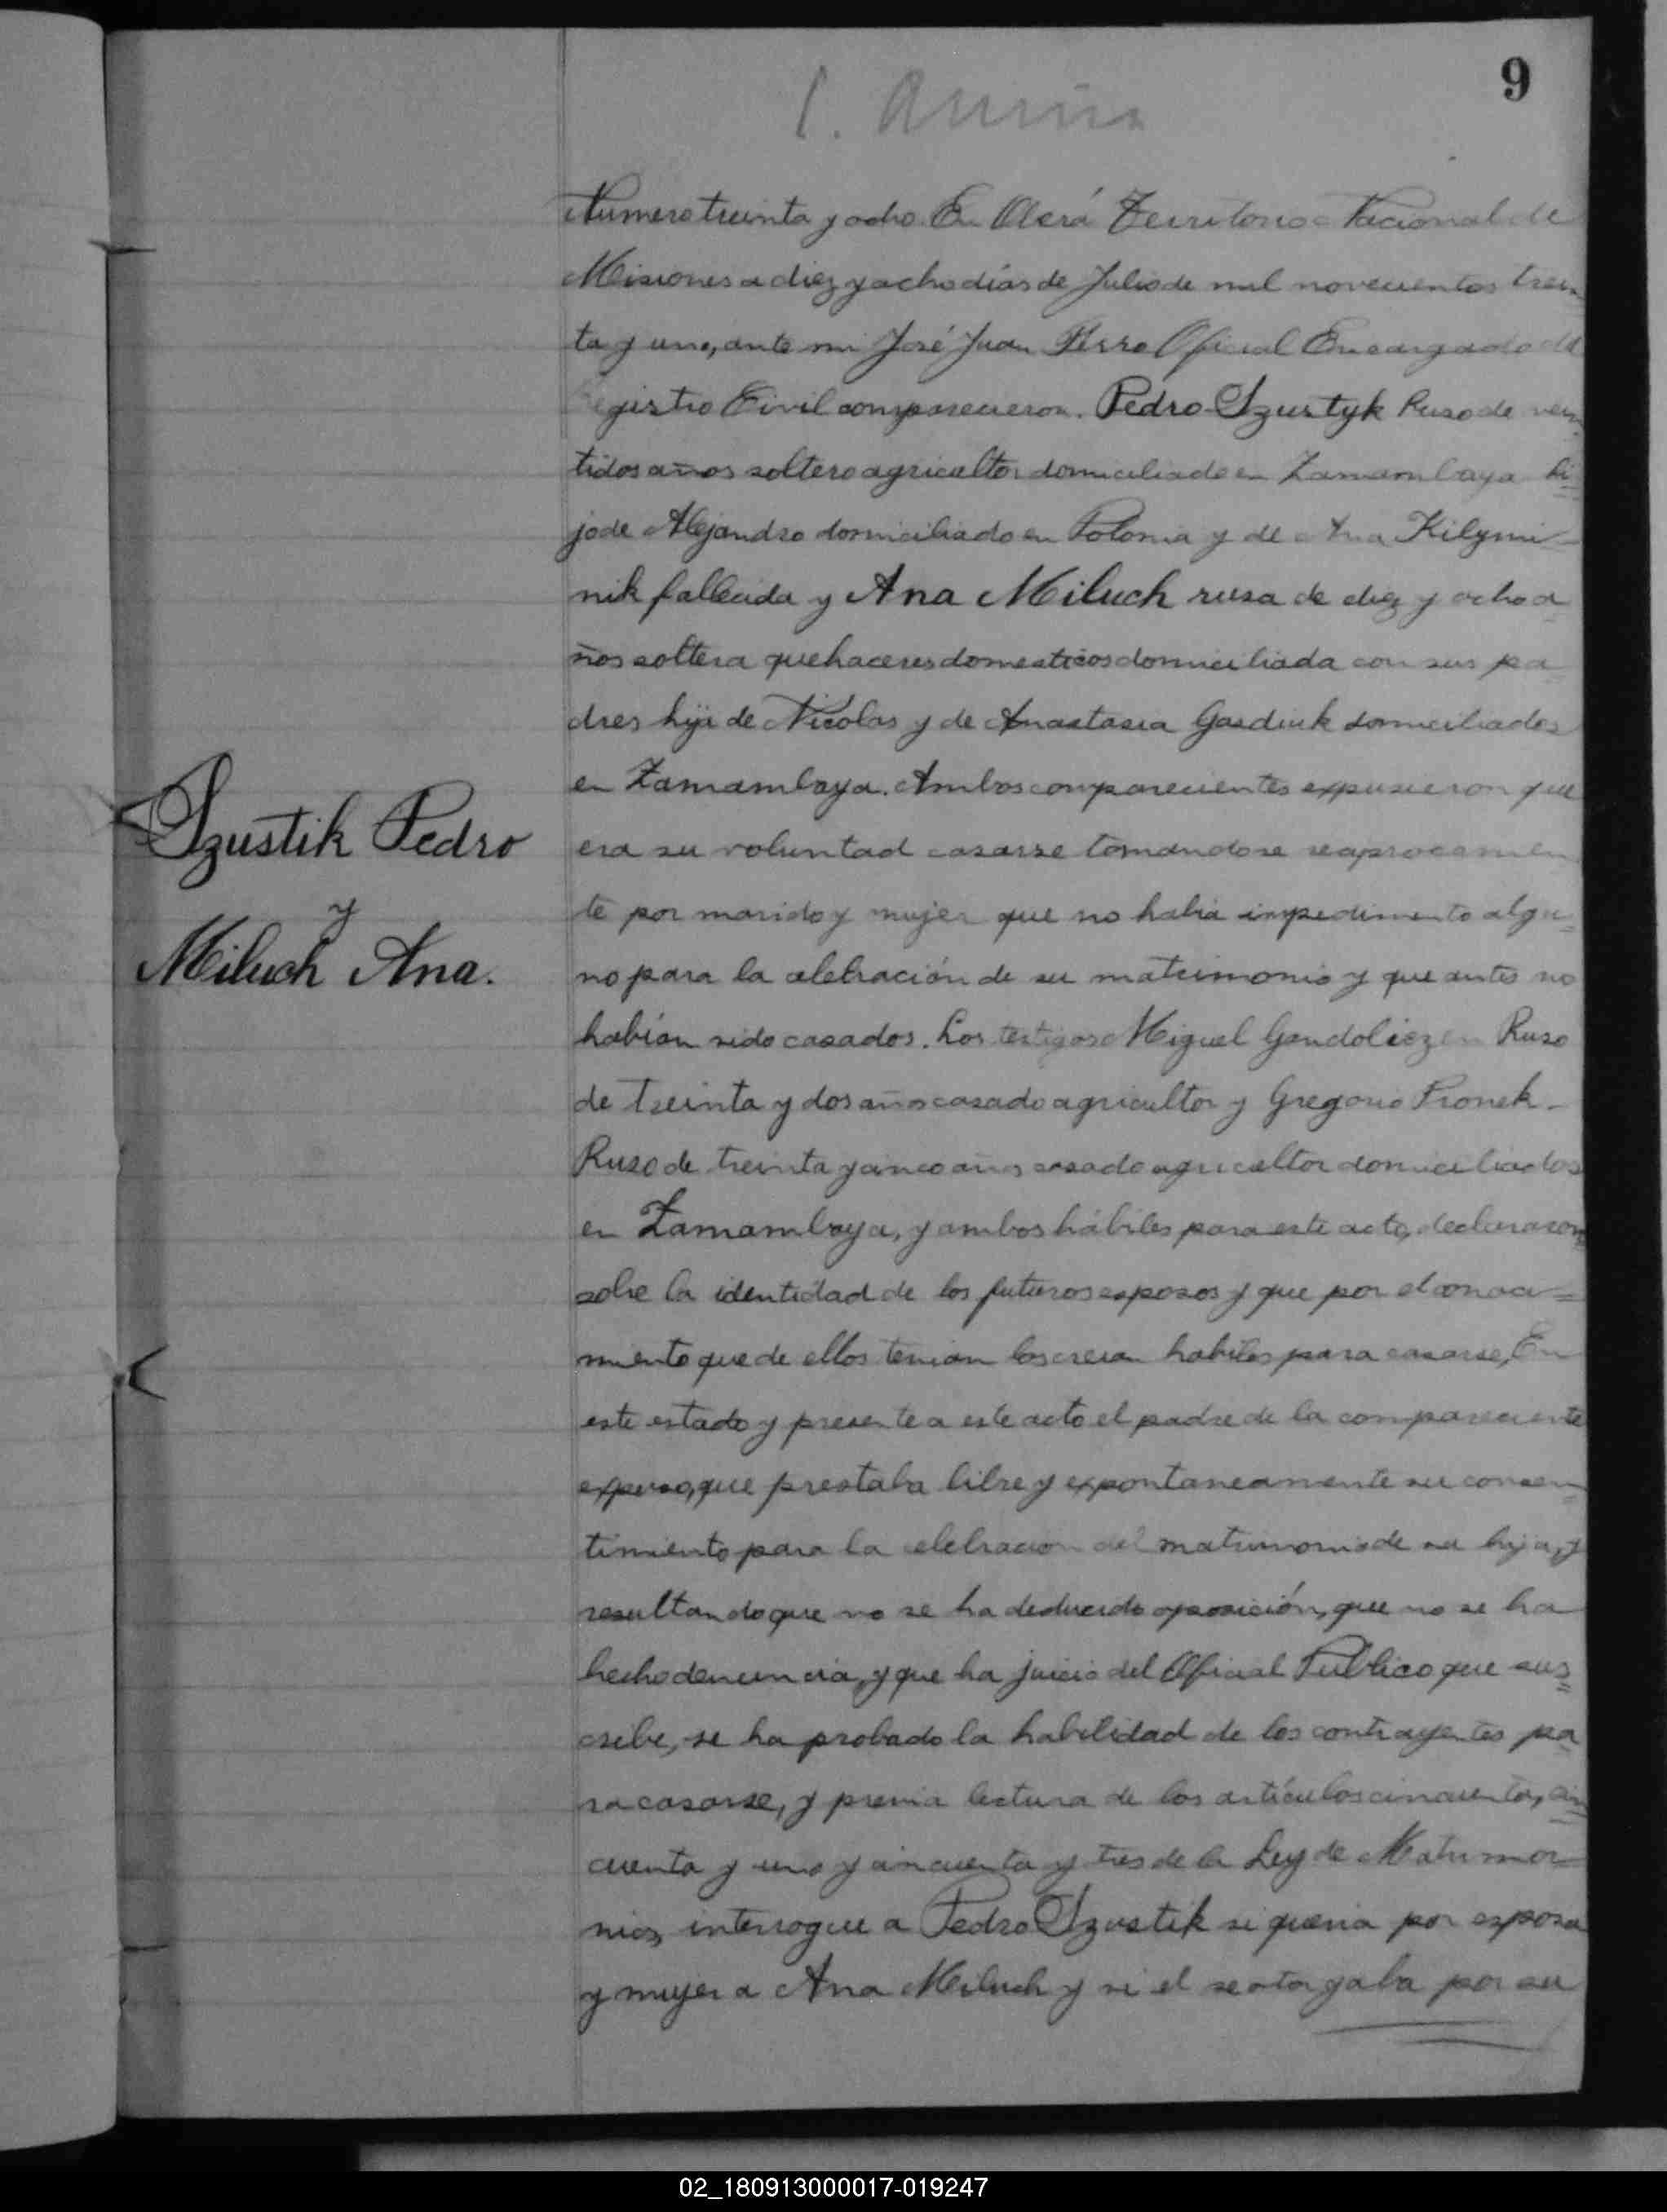 9
Numero treinta y ocho. En Oberá Territorio Nacional de
Misiones a diez y ocho días de Julio de mil novecientos trein=
ta y uno, ante mi José Juan Oficial Encargado del
Registro Civil comparecieron. Pedro Szustyk Ruso de vein
tidos años soltero agricultor domiciliado en Zamambaya hi=
jo de Alejandro domiciliado en Polonia y de Ana Kilymi-
nik fallecida y Ana Miluch rusa de diez y ocho a
ños soltera quehaceres domesticos domiciliada con sus pa
dres hija de Nicolas y de Anastasia Gasdiuk domiciliados
en Zamambaya. Ambos comparecientes expusieron que
Szustik Pedro
y
Miluch Ana.
era su voluntad casarse tomandose reciprocamen
te por marido y mujer que no habia impedimento algu=
no para la celebración de su matrimonio y que antes no
habían sido casados. Los testigos Miguel Ruso
de treinta y dos años casado agricultor y Gregorio Pronek-
Ruso de treinta y cinco años casado agricultor domiciliados
en Zamambaya, y ambos hábiles para este acto, declararon
sobre la identidad de los futuros esposos y que por el conoci=
miento que de ellos tenian los creian habiles para casarse, En
este estado y presente a este acto el padre de la compareciente
expuso, que prestaba libre y expontaneamente su consen=
timiento para la celebracion del matrimonio de su hija, y
resultando que no se ha deducido oposición, que no se ha
hecho denuncia, y que ha juicio del Oficial Publico que sus=
cribe, se ha probado la habilidad de los contrayentes pa
ra casarse, y previa lectura de los artículos cincuenta, cin=
cuenta y uno y cincuenta y tres de la Ley de Matrimo=
nios, interrogue a Pedro Szustik si queria por esposa
y mujer a Ana Miluch y si el se otorgaba por su
02_180913000017-019247